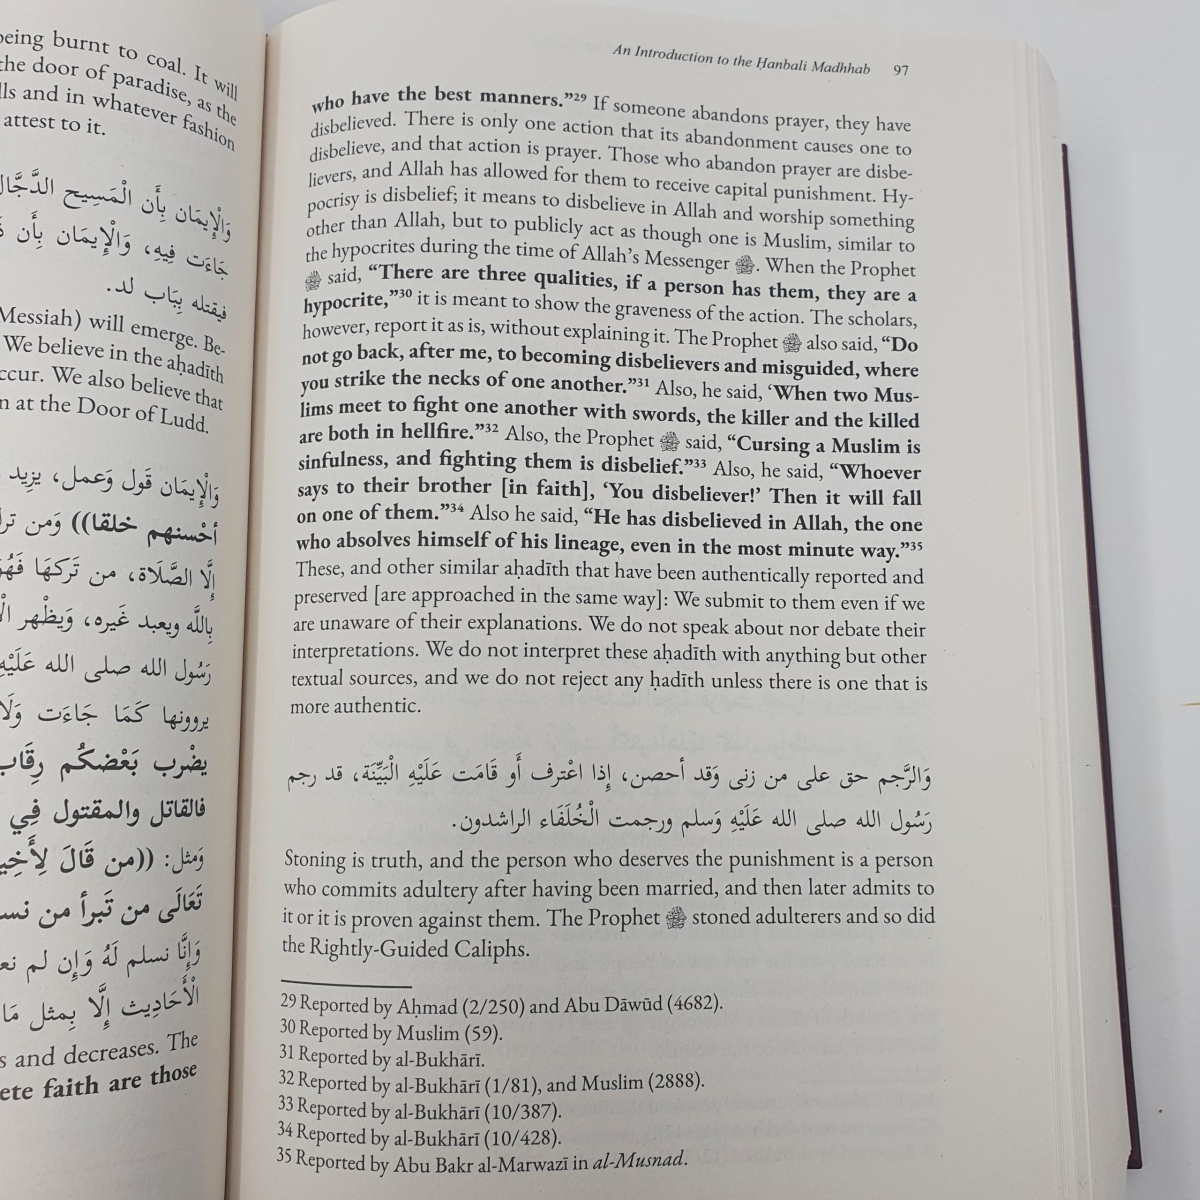 being burnt to coal. It will
the door of paradise, as the
lls and in whatever fashion
attest to it.
وَالْإِيمَان بِأَن الْمَسِيح الدَّجَّال
جَاءَت فِيهِ، وَالْإِيمَان بِأَن
فيقتله بِبَاب لد.
Messiah) will emerge. Be-
We believe in the aḥadīth
ccur. We also believe that
n at the Door of Ludd.
وَالْإِيمَان قَول وَعمل، يزِيد
أحْسنهم خلقا)) وَمن ترك
إِلَّا الصَّلَاة، من تَركهَا فَهُوَ
بِاللَّه ويعبد غَيره، وَيظْهر
رَسُول الله صلى الله عَلَيْهِ
يروونها كَمَا جَاءَت وَلَا
يضْرب بَعْضكُم رِقَاب
فالقاتل والمقتول فِي
وَمثل: ((من قَالَ لِأَخِيهِ
تَعَالَى من تَبرأ من نسب
وَإِنَّا نسلم لَهُ وَإِن لم نعلم
الْأَحَادِيث إِلَّا بِمثل مَا
s and decreases. The
ete faith are those
An Introduction to the Ḥanbali Madhhab 97
who have the best manners.”29 If someone abandons prayer, they have
disbelieved. There is only one action that its abandonment causes one to
disbelieve, and that action is prayer. Those who abandon prayer are disbe-
lievers, and Allah has allowed for them to receive capital punishment. Hy-
pocrisy is disbelief; it means to disbelieve in Allah and worship something
other than Allah, but to publicly act as though one is Muslim, similar to
the hypocrites during the time of Allah’s Messenger ﷺ. When the Prophet
ﷺ said, “There are three qualities, if a person has them, they are a
hypocrite,”30 it is meant to show the graveness of the action. The scholars,
however, report it as is, without explaining it. The Prophet ﷺ also said, “Do
not go back, after me, to becoming disbelievers and misguided, where
you strike the necks of one another.”31 Also, he said, ‘When two Mus-
lims meet to fight one another with swords, the killer and the killed
are both in hellfire.”32 Also, the Prophet ﷺ said, “Cursing a Muslim is
sinfulness, and fighting them is disbelief.”33 Also, he said, “Whoever
says to their brother [in faith], ‘You disbeliever!’ Then it will fall
on one of them.”34 Also he said, “He has disbelieved in Allah, the one
who absolves himself of his lineage, even in the most minute way.”35
These, and other similar aḥadīth that have been authentically reported and
preserved [are approached in the same way]: We submit to them even if we
are unaware of their explanations. We do not speak about nor debate their
interpretations. We do not interpret these aḥadīth with anything but other
textual sources, and we do not reject any ḥadīth unless there is one that is
more authentic.
وَالرَّجم حق على من زنى وَقد أحصن، إِذا اعْترف أَو قَامَت عَلَيْهِ الْبَيِّنَة، قد رجم
رَسُول الله صلى الله عَلَيْهِ وَسلم ورجمت الْخُلَفَاء الراشدون.
Stoning is truth, and the person who deserves the punishment is a person
who commits adultery after having been married, and then later admits to
it or it is proven against them. The Prophet ﷺ stoned adulterers and so did
the Rightly-Guided Caliphs.
29 Reported by Aḥmad (2/250) and Abu Dāwūd (4682).
30 Reported by Muslim (59).
31 Reported by al-Bukhārī.
32 Reported by al-Bukhārī (1/81), and Muslim (2888).
33 Reported by al-Bukhārī (10/387).
34 Reported by al-Bukhārī (10/428).
35 Reported by Abu Bakr al-Marwazī in al-Musnad.